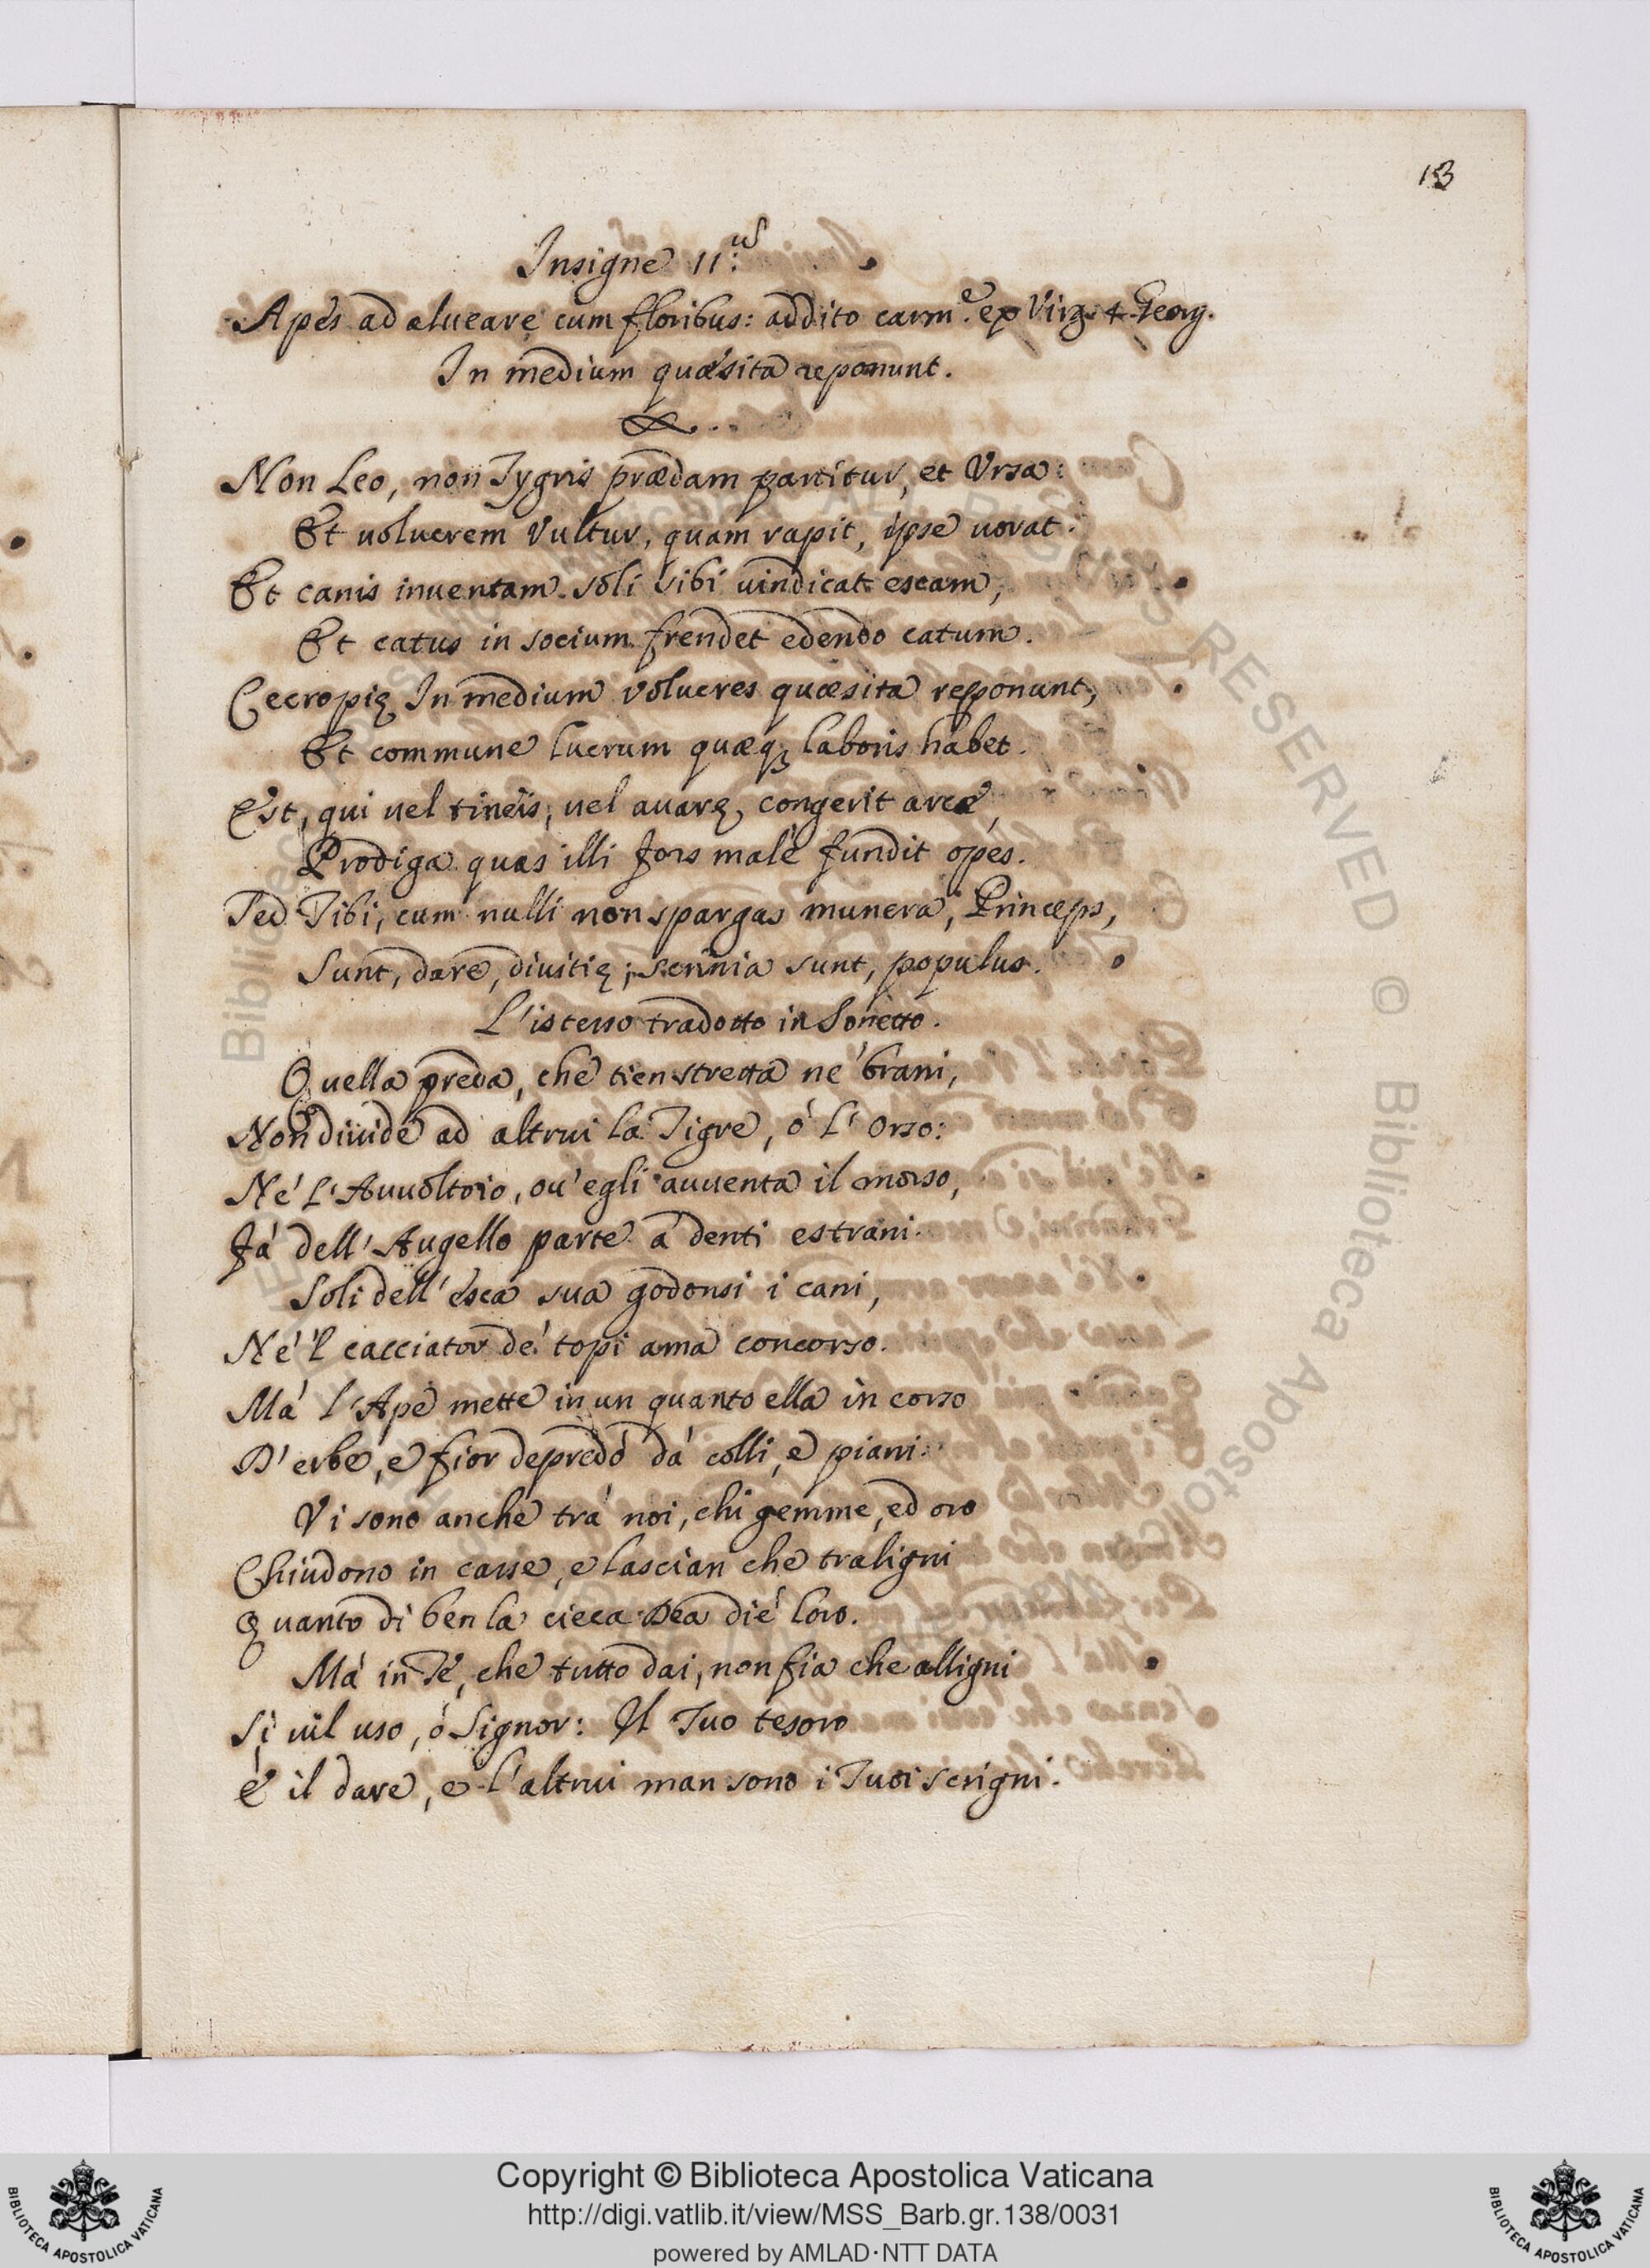 13
Insigne 11.us
Apes ad alueare cum floribus: addito carm.e ex Virg. 4. Georg.
In medium quæsita reponunt.
Non Leo, non Tygris prædam partitur, et Vrsa:
Et uolucrem Vultur, quam rapit, ipse uorat.
Et canis inuentam soli sibi uindicat escam,
Et catus in socium frendet edendo catum.
Cecropię In medium volucres quæsita reponunt,
Et commune lucrum quæq; laboris habet.
Est, qui uel tineis, uel auarę congerit arcæ,
Prodiga quas illi fors malè fundit opes.
Sed Tibi, cum nulli non spargas munera, Princeps,
Sunt, dare, diuitię; scrinia sunt, populus.
L'istesso tradotto in Sonetto.
Quella preda, che tien stretta ne' brani,
Non diuide ad altrui la Tigre, ò l'Orso:
Nè l'Auuoltoio, ou'egli auuenta il morso,
Fà dell'Augello parte à denti estrani.
Soli dell'esca sua godonsi i cani,
Nè 'l cacciator de' topi ama concorso.
Mà l'Ape mette in un quanto ella in corso
D'erbe, e fior depredò dà colli, e piani.
Vi sono anche trà noi, chi gemme, ed oro
Chiudono in casse, e lascian che traligni
Quanto di ben la cieca Dea diè loro.
Mà in Tè, che tutto dai, non fia che alligni
Sì uil uso, ò Signor: Il Tuo tesoro
è il dare, e l'altrui man sono i Tuoi scrigni.
© Biblioteca Apostolica
RESERVED
Copyright © Biblioteca Apostolica Vaticana
http://digi.vatlib.it/view/MSS_Barb.gr.138/0031
powered by AMLAD·NTT DATA
BIBLIOTECA APOSTOLICA VATICANA
BIBLIOTECA APOSTOLICA VATICANA